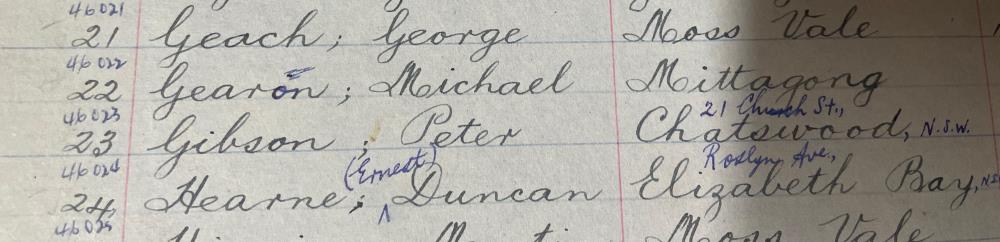 46021
21 Geach; George Moss Vale
46022
22 Gearon; Michael Mittagong
46023 21 Church St.,
23 Gibson; Peter Chatswood, N.S.W.
46024 (Ernest) Roslyn Ave,
24 Hearne; ^ Duncan Elizabeth Bay, NS
46025
Moss Vale